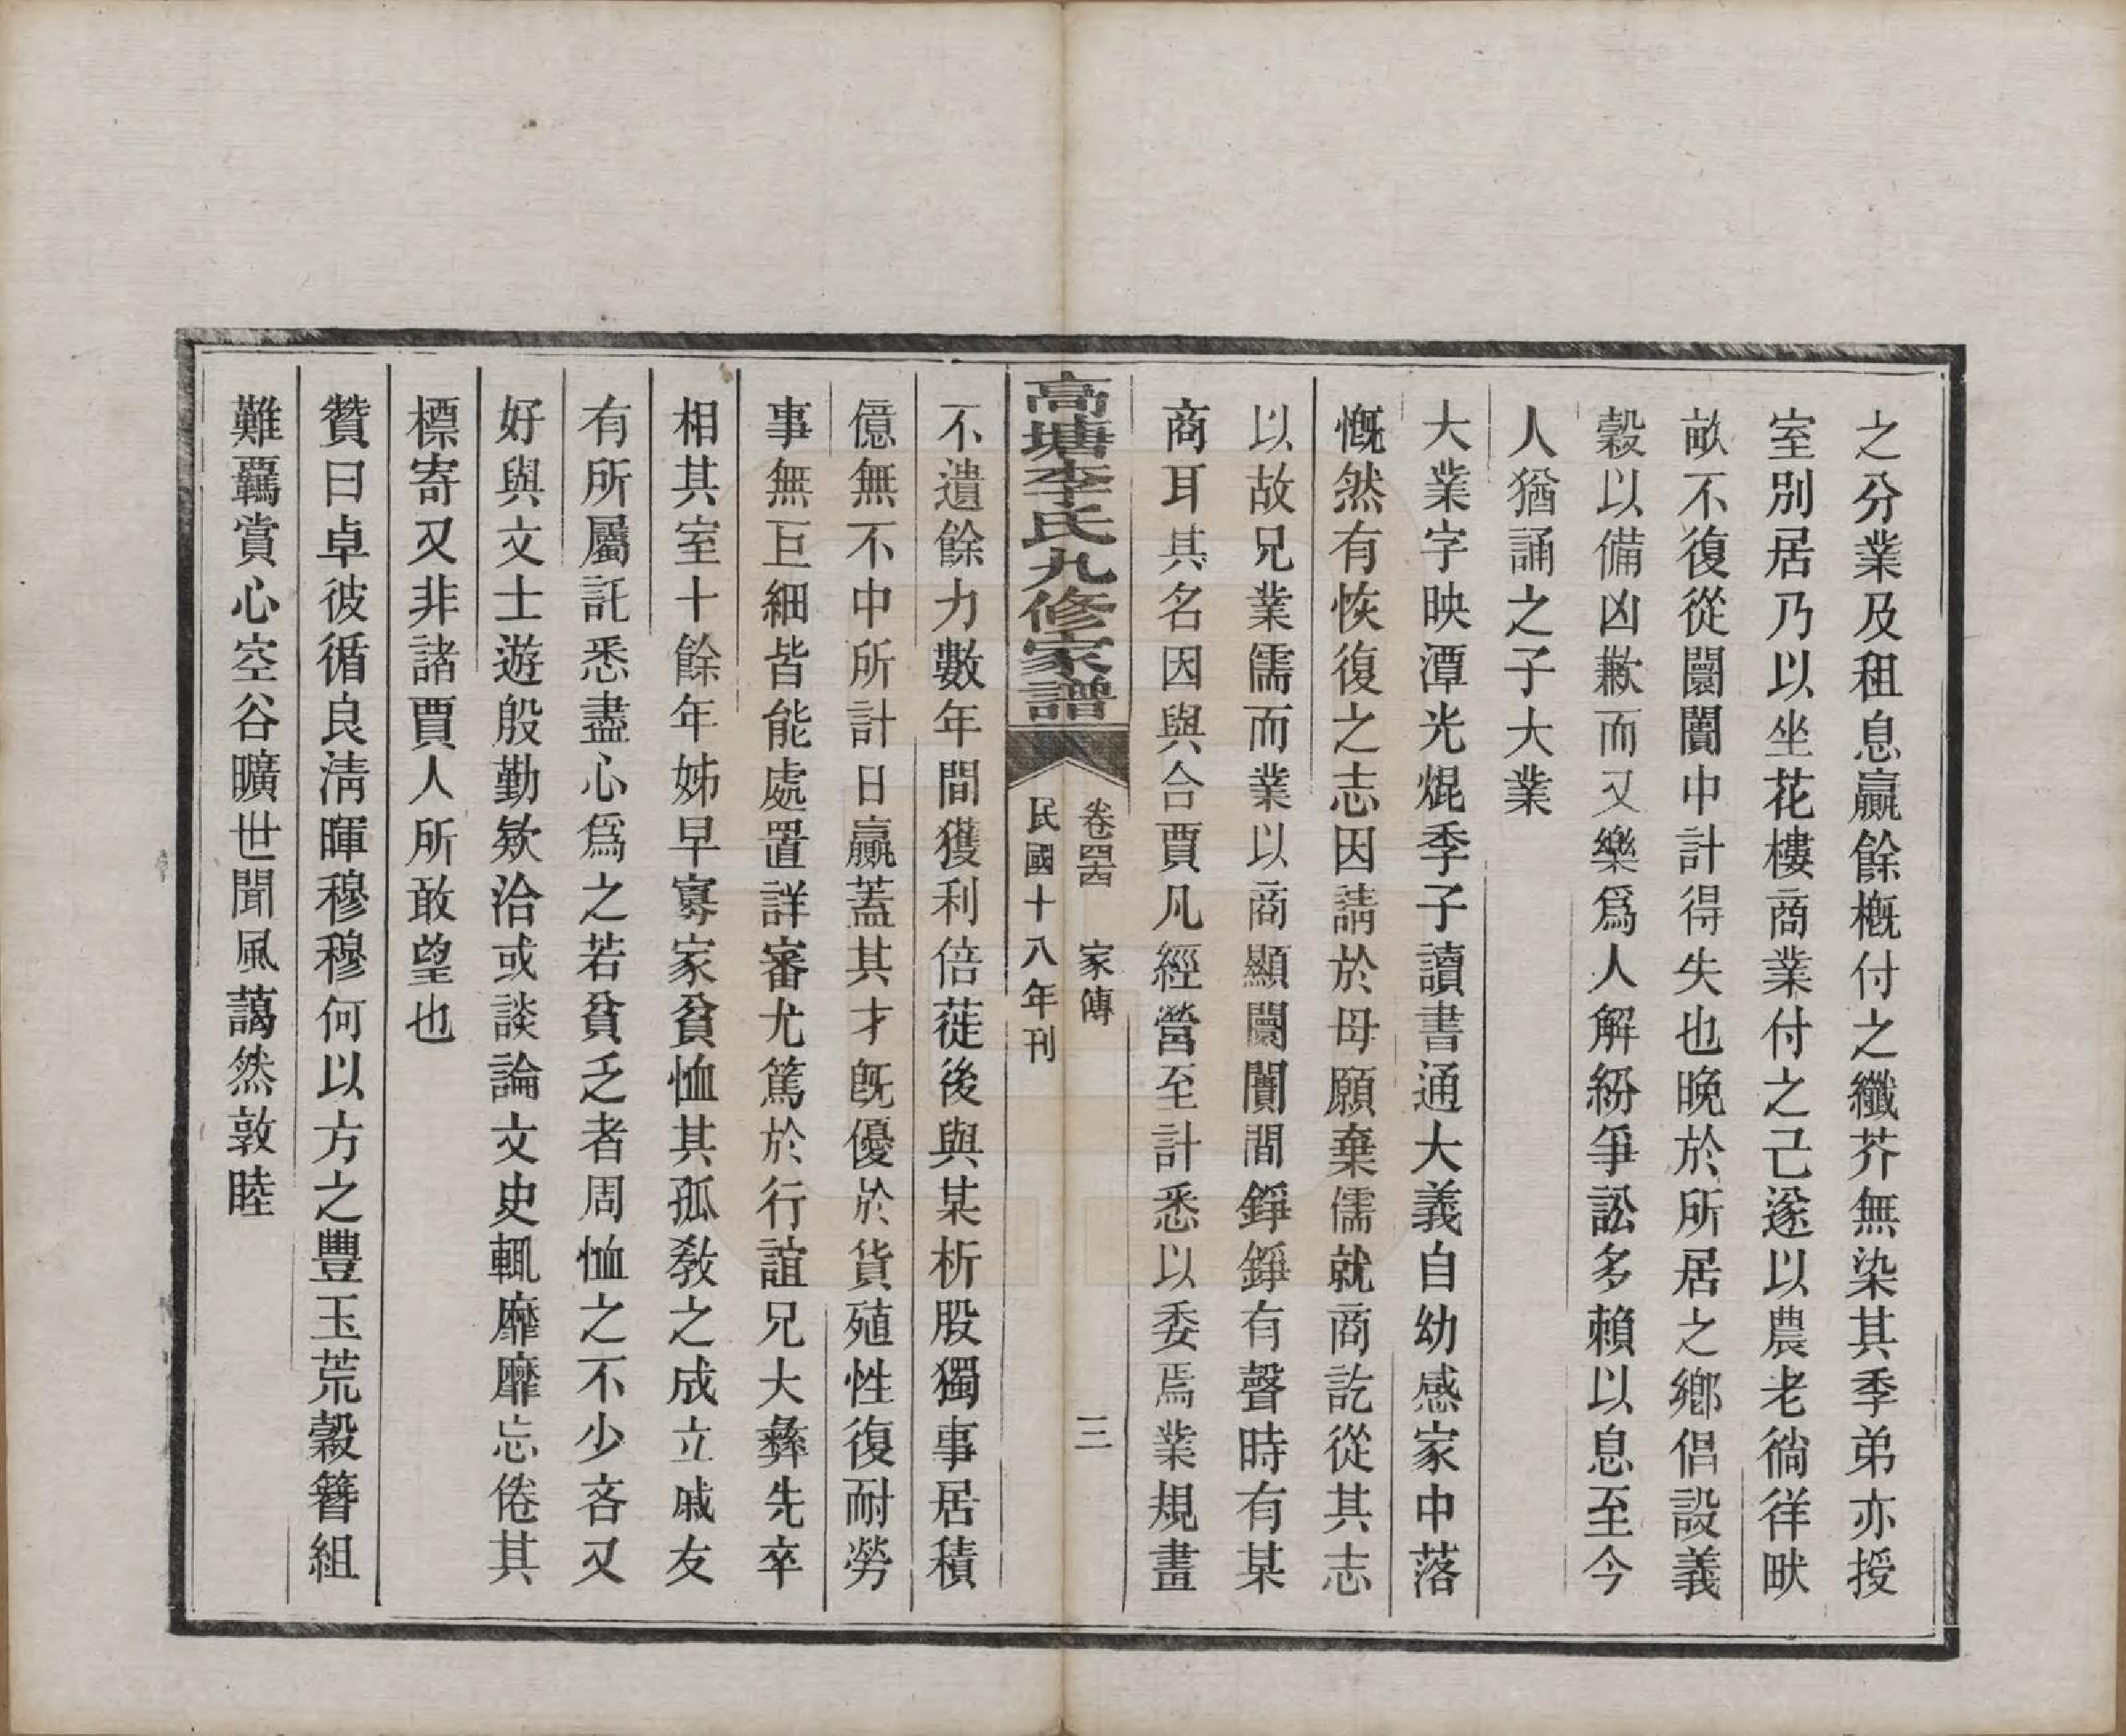 之分業及租息贏餘概付之纖芥無染其季弟亦授
室別居乃以坐花樓商業付之己遂以農老徜徉畎
畝不復從闤闠中計得失也晚於所居之鄉倡設義
穀以備凶歉而又樂爲人解紛爭訟多賴以息至今
人猶誦之子大業
大業字映潭光焜季子讀書通大義自幼感家中落
慨然有恢復之志因請於母願棄儒就商訖從其志
以故兄業儒而業以商顯闤闠間錚錚有聲時有某
商耳其名因與合賈凡經營至計悉以委焉業規畫
高塘李氏九修家譜
卷四四 家傳
三
民國十八年刊
不遺餘力數年間獲利倍蓰後與某析股獨事居積
億無不中所計日贏蓋其才旣優於貨殖性復耐勞
事無巨細皆能處置詳審尤篤於行誼兄大彝先卒
相其室十餘年姊早寡家貧恤其孤敎之成立戚友
有所屬託悉盡心爲之若貧乏者周恤之不少吝又
好與文士遊殷勤欵洽或談論文史輒靡靡忘倦其
標寄又非諸賈人所敢望也
贊曰卓彼循良淸暉穆穆何以方之豐玉荒穀簪組
難覊賞心空谷曠世聞風藹然敦睦